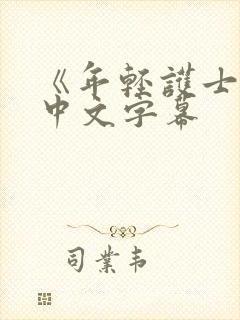 《年轻護士
中文字幕
司業韦